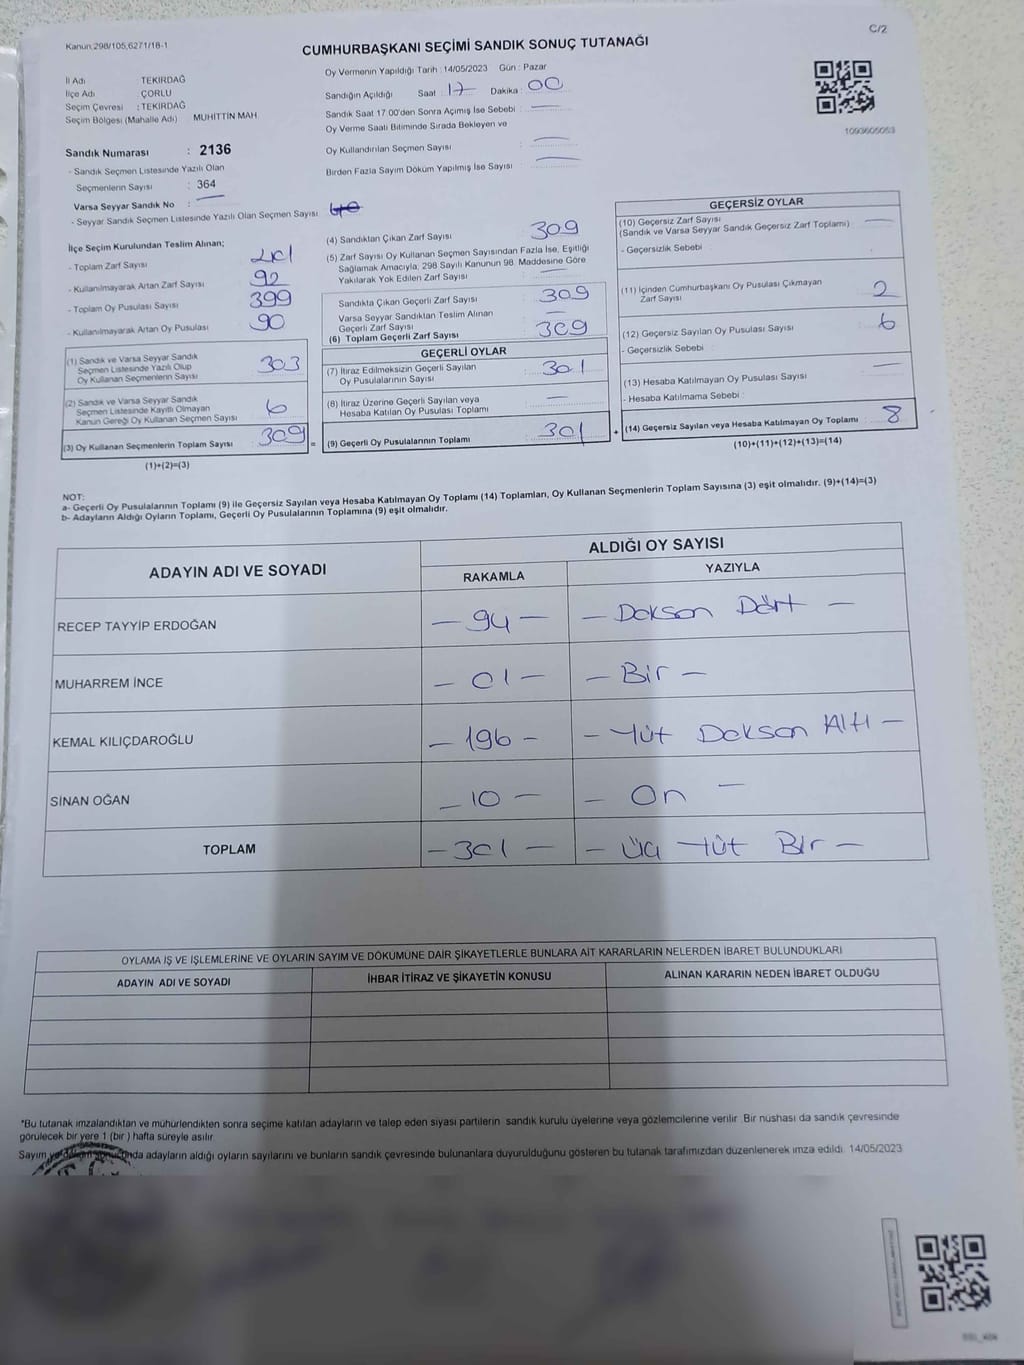 Kanun 298/105,6271/18-1
C/2
CUMHURBAŞKANI SEÇİMİ SANDIK SONUÇ TUTANAĞI
İl Adı : TEKİRDAĞ
İlçe Adı : ÇORLU
Seçim Çevresi : TEKİRDAĞ
Seçim Bölgesi (Mahalle Adı) MUHITTİN MAH
Sandık Numarası : 2136
- Sandık Seçmen Listesinde Yazılı Olan
Seçmenlerin Sayısı : 364
Varsa Seyyar Sandık No : —
- Seyyar Sandık Seçmen Listesinde Yazılı Olan Seçmen Sayısı
Oy Vermenin Yapıldığı Tarih : 14/05/2023 Gün : Pazar
Sandığın Açıldığı Saat : 17 Dakika : 00
Sandık Saat 17.00'den Sonra Açımış İse Sebebi : —
Oy Verme Saati Bitiminde Sırada Bekleyen ve
Oy Kullandırılan Seçmen Sayısı : —
Birden Fazla Sayım Döküm Yapılmış İse Sayısı : —
1093605053
İlçe Seçim Kurulundan Teslim Alınan;
- Toplam Zarf Sayısı : 401
- Kullanılmayarak Artan Zarf Sayısı : 92
- Toplam Oy Pusulası Sayısı : 399
- Kullanılmayarak Artan Oy Pusulası : 90
(1) Sandık ve Varsa Seyyar Sandık
Seçmen Listesinde Yazılı Olup
Oy Kullanan Seçmenlerin Sayısı : 303
(2) Sandık ve Varsa Seyyar Sandık
Seçmen Listesinde Kayıtlı Olmayan
Kanun Gereği Oy Kullanan Seçmen Sayısı : 6
(3) Oy Kullanan Seçmenlerin Toplam Sayısı : 309 =
(1)+(2)=(3)
(4) Sandıktan Çıkan Zarf Sayısı : 309
(5) Zarf Sayısı Oy Kullanan Seçmen Sayısından Fazla İse, Eşitliği
Sağlamak Amacıyla; 298 Sayılı Kanunun 98. Maddesine Göre
Yakılarak Yok Edilen Zarf Sayısı : —
Sandıkta Çıkan Geçerli Zarf Sayısı : 309
Varsa Seyyar Sandıktan Teslim Alınan
Geçerli Zarf Sayısı : —
(6) Toplam Geçerli Zarf Sayısı : 309
GEÇERLİ OYLAR
(7) İtiraz Edilmeksizin Geçerli Sayılan
Oy Pusulalarının Sayısı : 301
(8) İtiraz Üzerine Geçerli Sayılan veya
Hesaba Katılan Oy Pusulası Toplamı : —
(9) Geçerli Oy Pusulalarının Toplamı : 301 +
GEÇERSİZ OYLAR
(10) Geçersiz Zarf Sayısı : —
(Sandık ve Varsa Seyyar Sandık Geçersiz Zarf Toplamı)
- Geçersizlik Sebebi :
(11) İçinden Cumhurbaşkanı Oy Pusulası Çıkmayan
Zarf Sayısı : 2
(12) Geçersiz Sayılan Oy Pusulası Sayısı : 6
- Geçersizlik Sebebi :
(13) Hesaba Katılmayan Oy Pusulası Sayısı : —
- Hesaba Katılmama Sebebi :
(14) Geçersiz Sayılan veya Hesaba Katılmayan Oy Toplamı : 8
(10)+(11)+(12)+(13)=(14)
NOT:
a- Geçerli Oy Pusulalarının Toplamı (9) ile Geçersiz Sayılan veya Hesaba Katılmayan Oy Toplamı (14) Toplamları, Oy Kullanan Seçmenlerin Toplam Sayısına (3) eşit olmalıdır. (9)+(14)=(3)
b- Adayların Aldığı Oyların Toplamı, Geçerli Oy Pusulalarının Toplamına (9) eşit olmalıdır.
ADAYIN ADI VE SOYADI
ALDIĞI OY SAYISI
RAKAMLA YAZIYLA
RECEP TAYYİP ERDOĞAN — 94 — — Doksan Dört —
MUHARREM İNCE — 01 — — Bir —
KEMAL KILIÇDAROĞLU — 196 — — Yüz Doksan Altı —
SİNAN OĞAN — 10 — — On —
TOPLAM — 301 — — Üç Yüz Bir —
OYLAMA İŞ VE İŞLEMLERİNE VE OYLARIN SAYIM VE DÖKÜMÜNE DAİR ŞİKAYETLERLE BUNLARA AİT KARARLARIN NELERDEN İBARET BULUNDUKLARI
ADAYIN ADI VE SOYADI İHBAR İTİRAZ VE ŞİKAYETİN KONUSU ALINAN KARARIN NEDEN İBARET OLDUĞU
*Bu tutanak imzalandıktan ve mühürlendikten sonra seçime katılan adayların ve talep eden siyasi partilerin sandık kurulu üyelerine veya gözlemcilerine verilir. Bir nüshası da sandık çevresinde
görülecek bir yere 1 (bir) hafta süreyle asılır
Sayım ve döküm sonucunda adayların aldığı oyların sayılarını ve bunların sandık çevresinde bulunanlara duyurulduğunu gösteren bu tutanak tarafımızdan düzenlenerek imza edildi. 14/05/2023